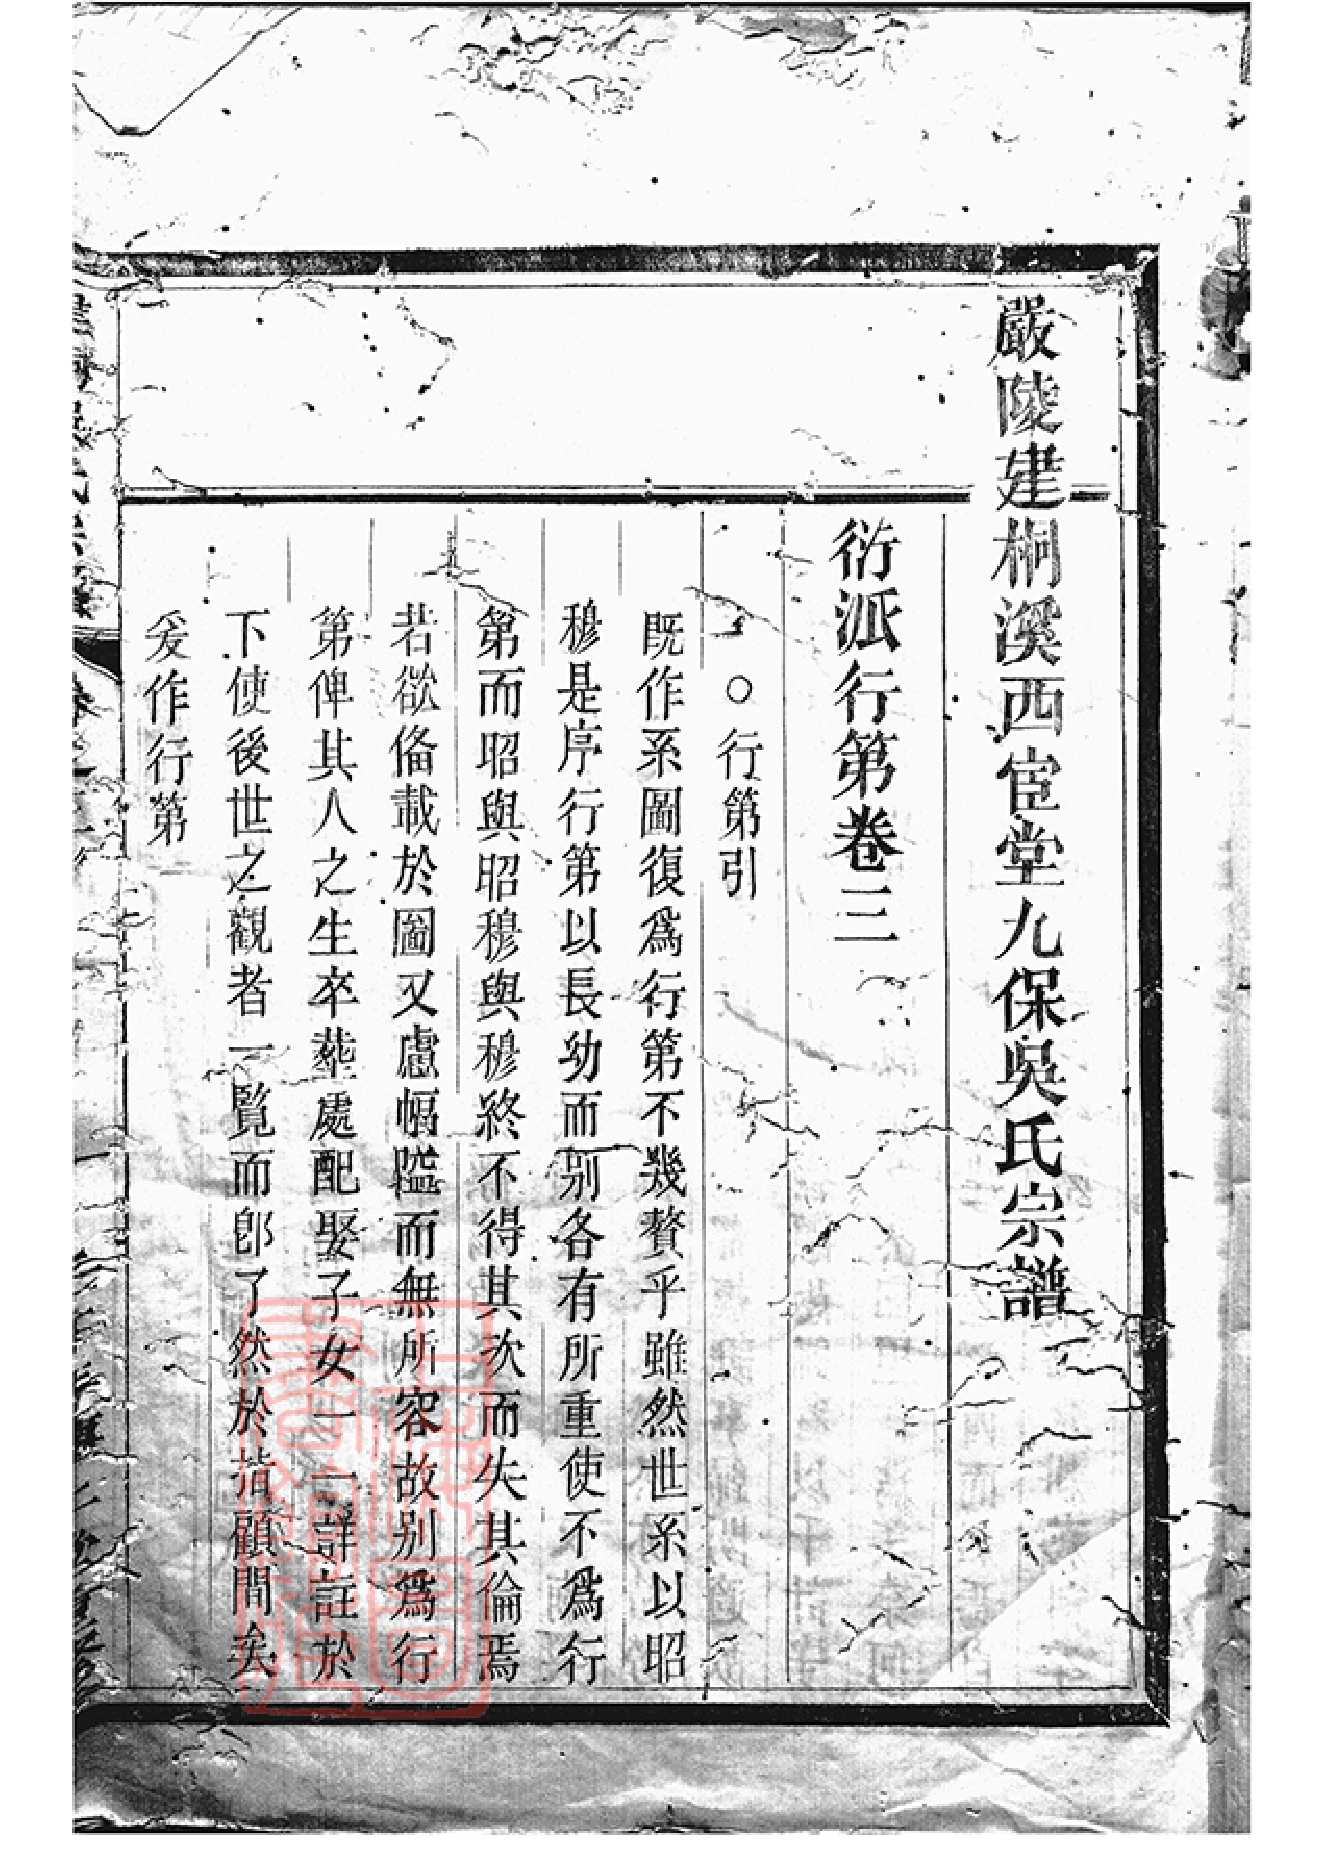 嚴陵建桐溪西宦堂九保吳氏宗譜
衍派行第卷三
○行第引
既作系圖復爲行第不幾贅乎雖然世系以昭
穆是序行第以長幼而别各有所重使不爲行
第而昭與昭穆與穆終不得其次而失其倫焉
若欲俻載於圖又慮幅隘而無所容故别爲行
第俾其人之生卒塟處配娶子女一一詳註於
下使後世之觀者一覽而卽了然於指顧間矣
爰作行第